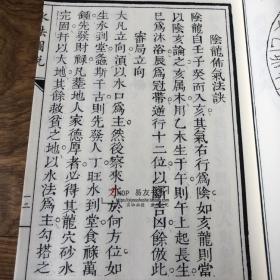 陰龍佈氣法訣
陰龍自壬子癸而入亥其氣石行爲陰如亥龍則當
以陰亥論之亥屬木用乙木生于午則午上起長生
巳爲沐浴辰爲冠帶逆行十二位以斷吉凶餘倣此
審局立向
大凡立向須以水口爲主然後察來水於何方位如
生水到堂螽斯千古則先發人丁旺水到堂食祿萬
鍾先發財祿凡墓地人家德厚者必得其龍穴砂水
完固并以大地其餘救貧之地以水法爲主勾搭之
水法圖說
十二